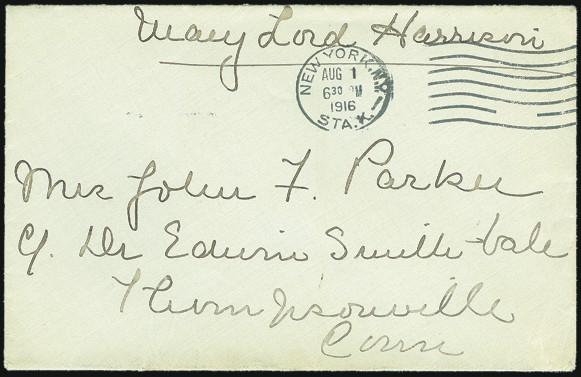 Mary Lord Harrison
NEW YORK, N.Y.
AUG 1
6 30 PM
1916
STA. K.
Mrs John F. Parker
c/. Dr Edwin Smith-vale
Thompsonville
Conn